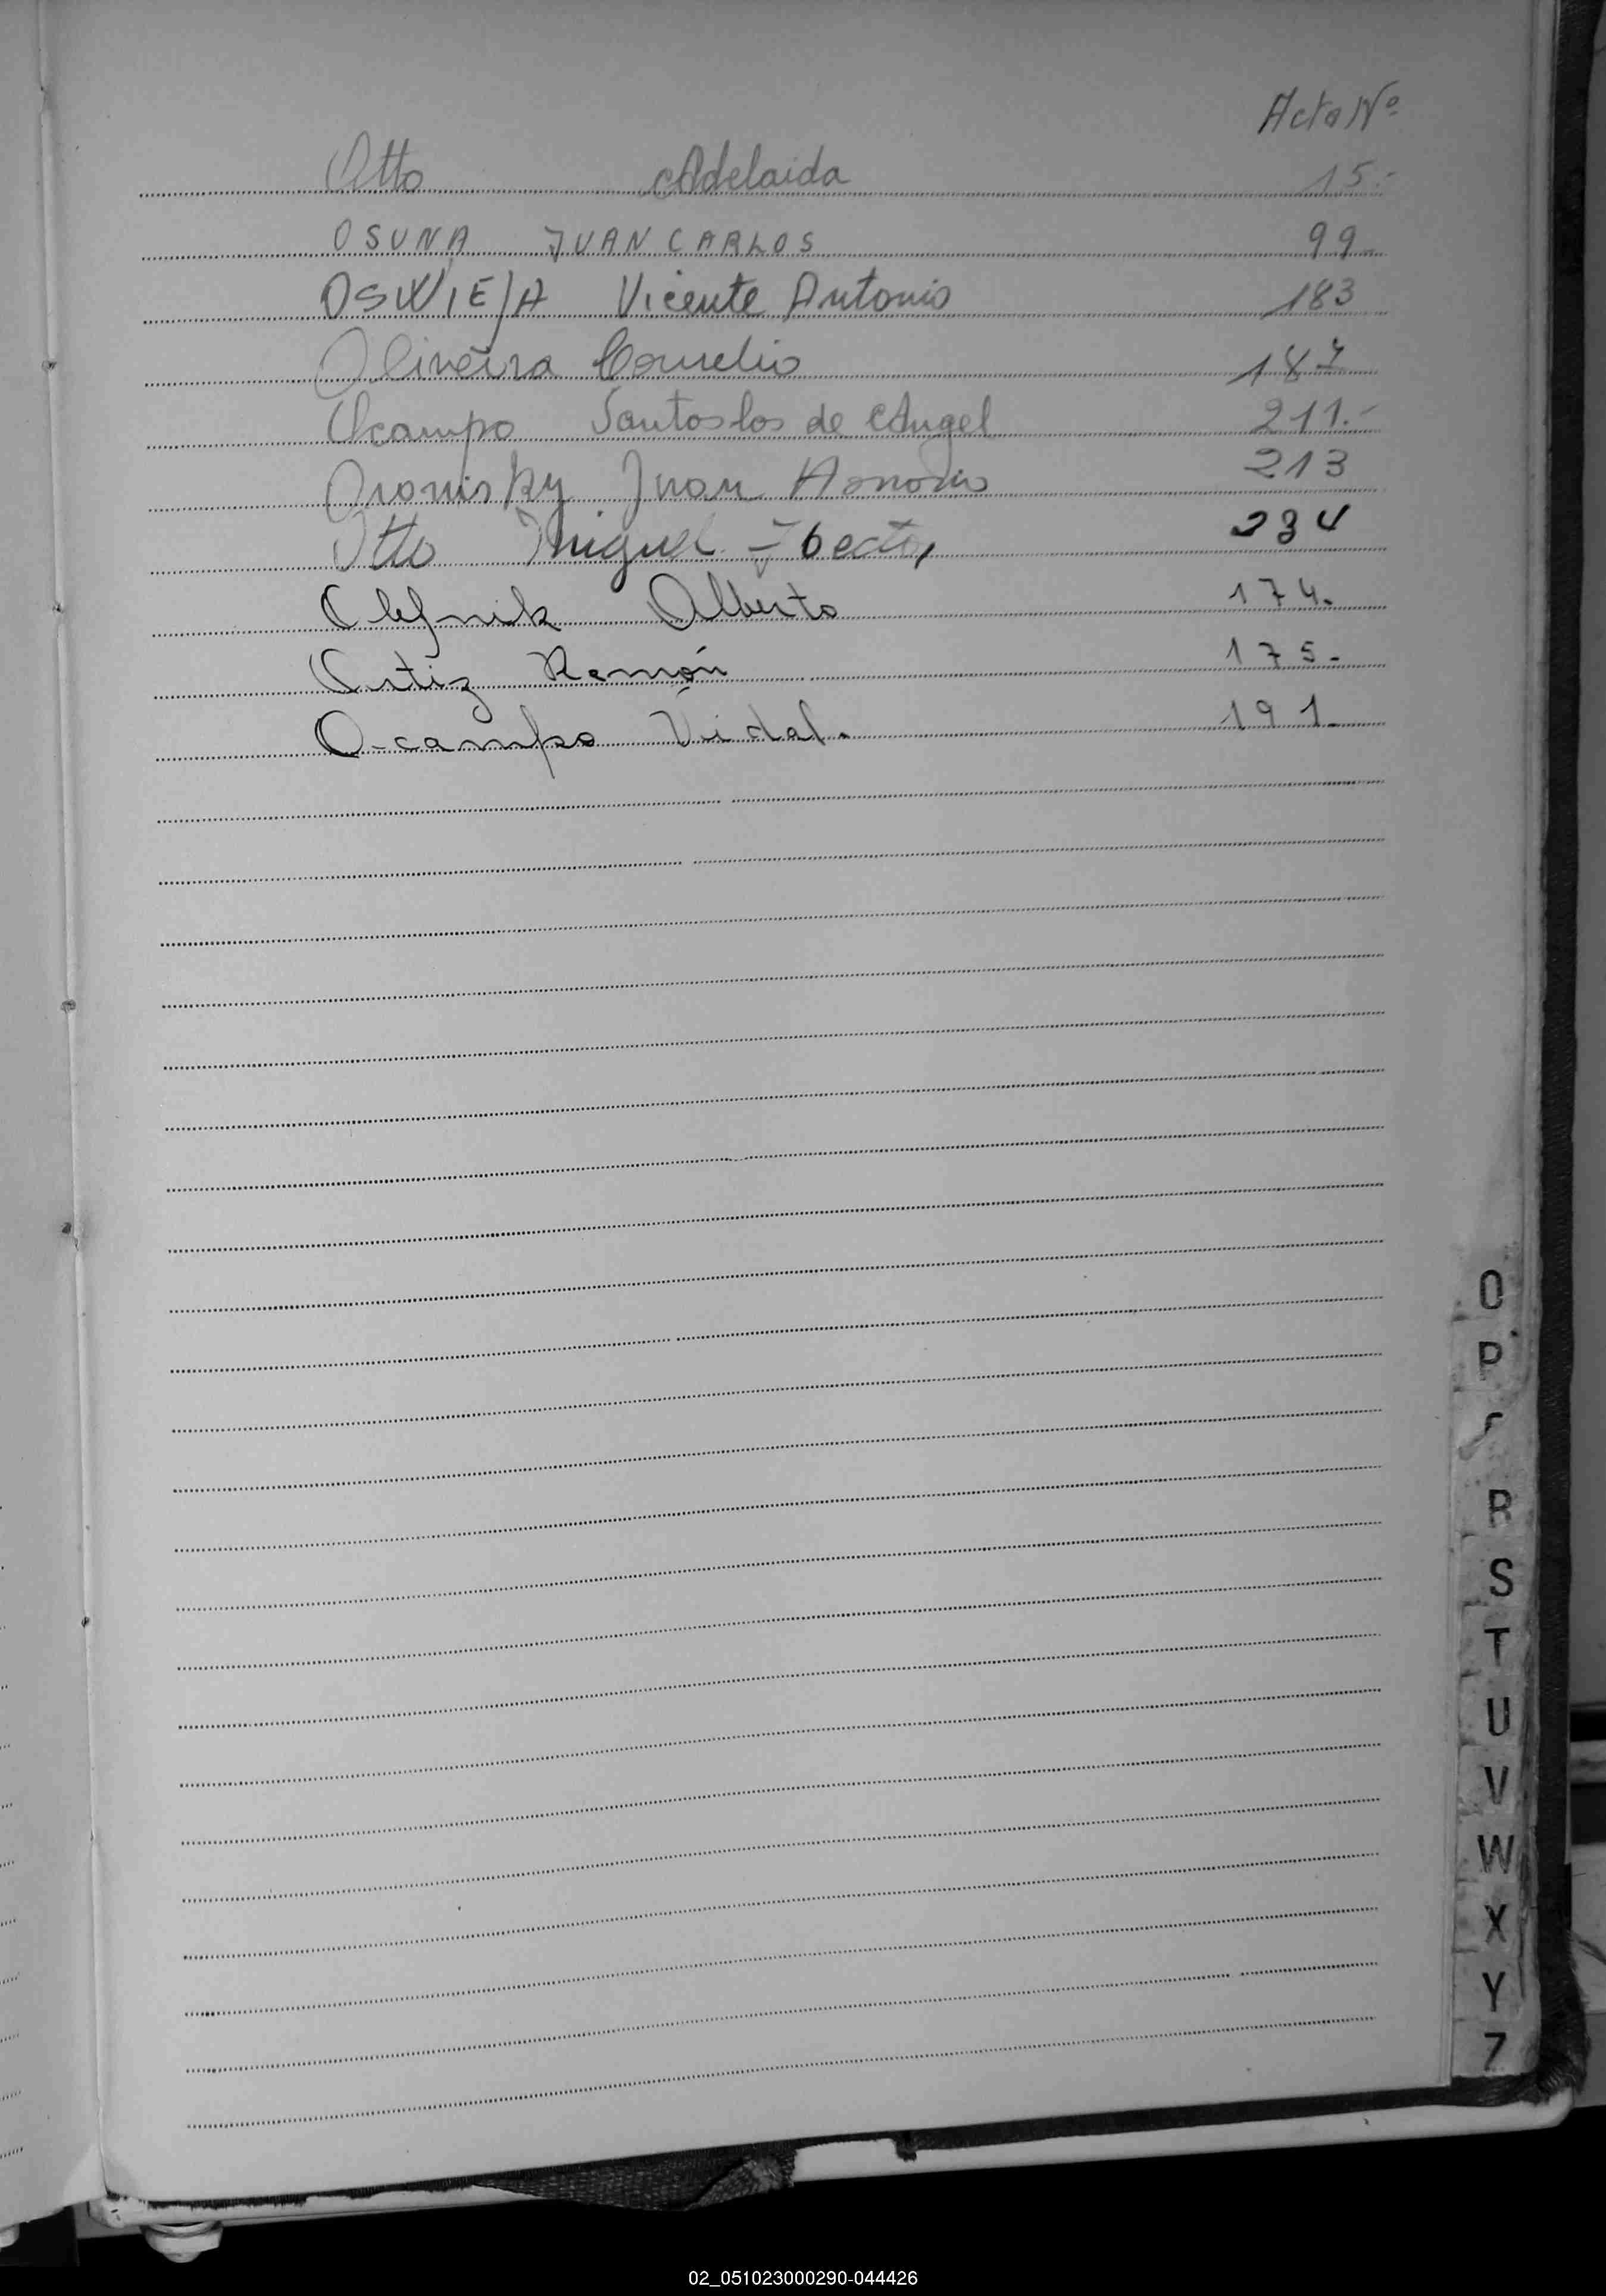 Acta Nº
Otto Adelaida 15.-
OSUNA JUAN CARLOS 99
OSWIEJA Vicente Antonio 183
Oliveira Cornelio 187
Ocampo Santos los de Angel 211.-
Juan 213
Otto Miguel 234
Olejnik Alberto 174.
Ortiz Ramón 175-
Ocampo Vidal. 191.
O
P
R
S
T
U
V
W
X
Y
Z
02_051023000290-044426